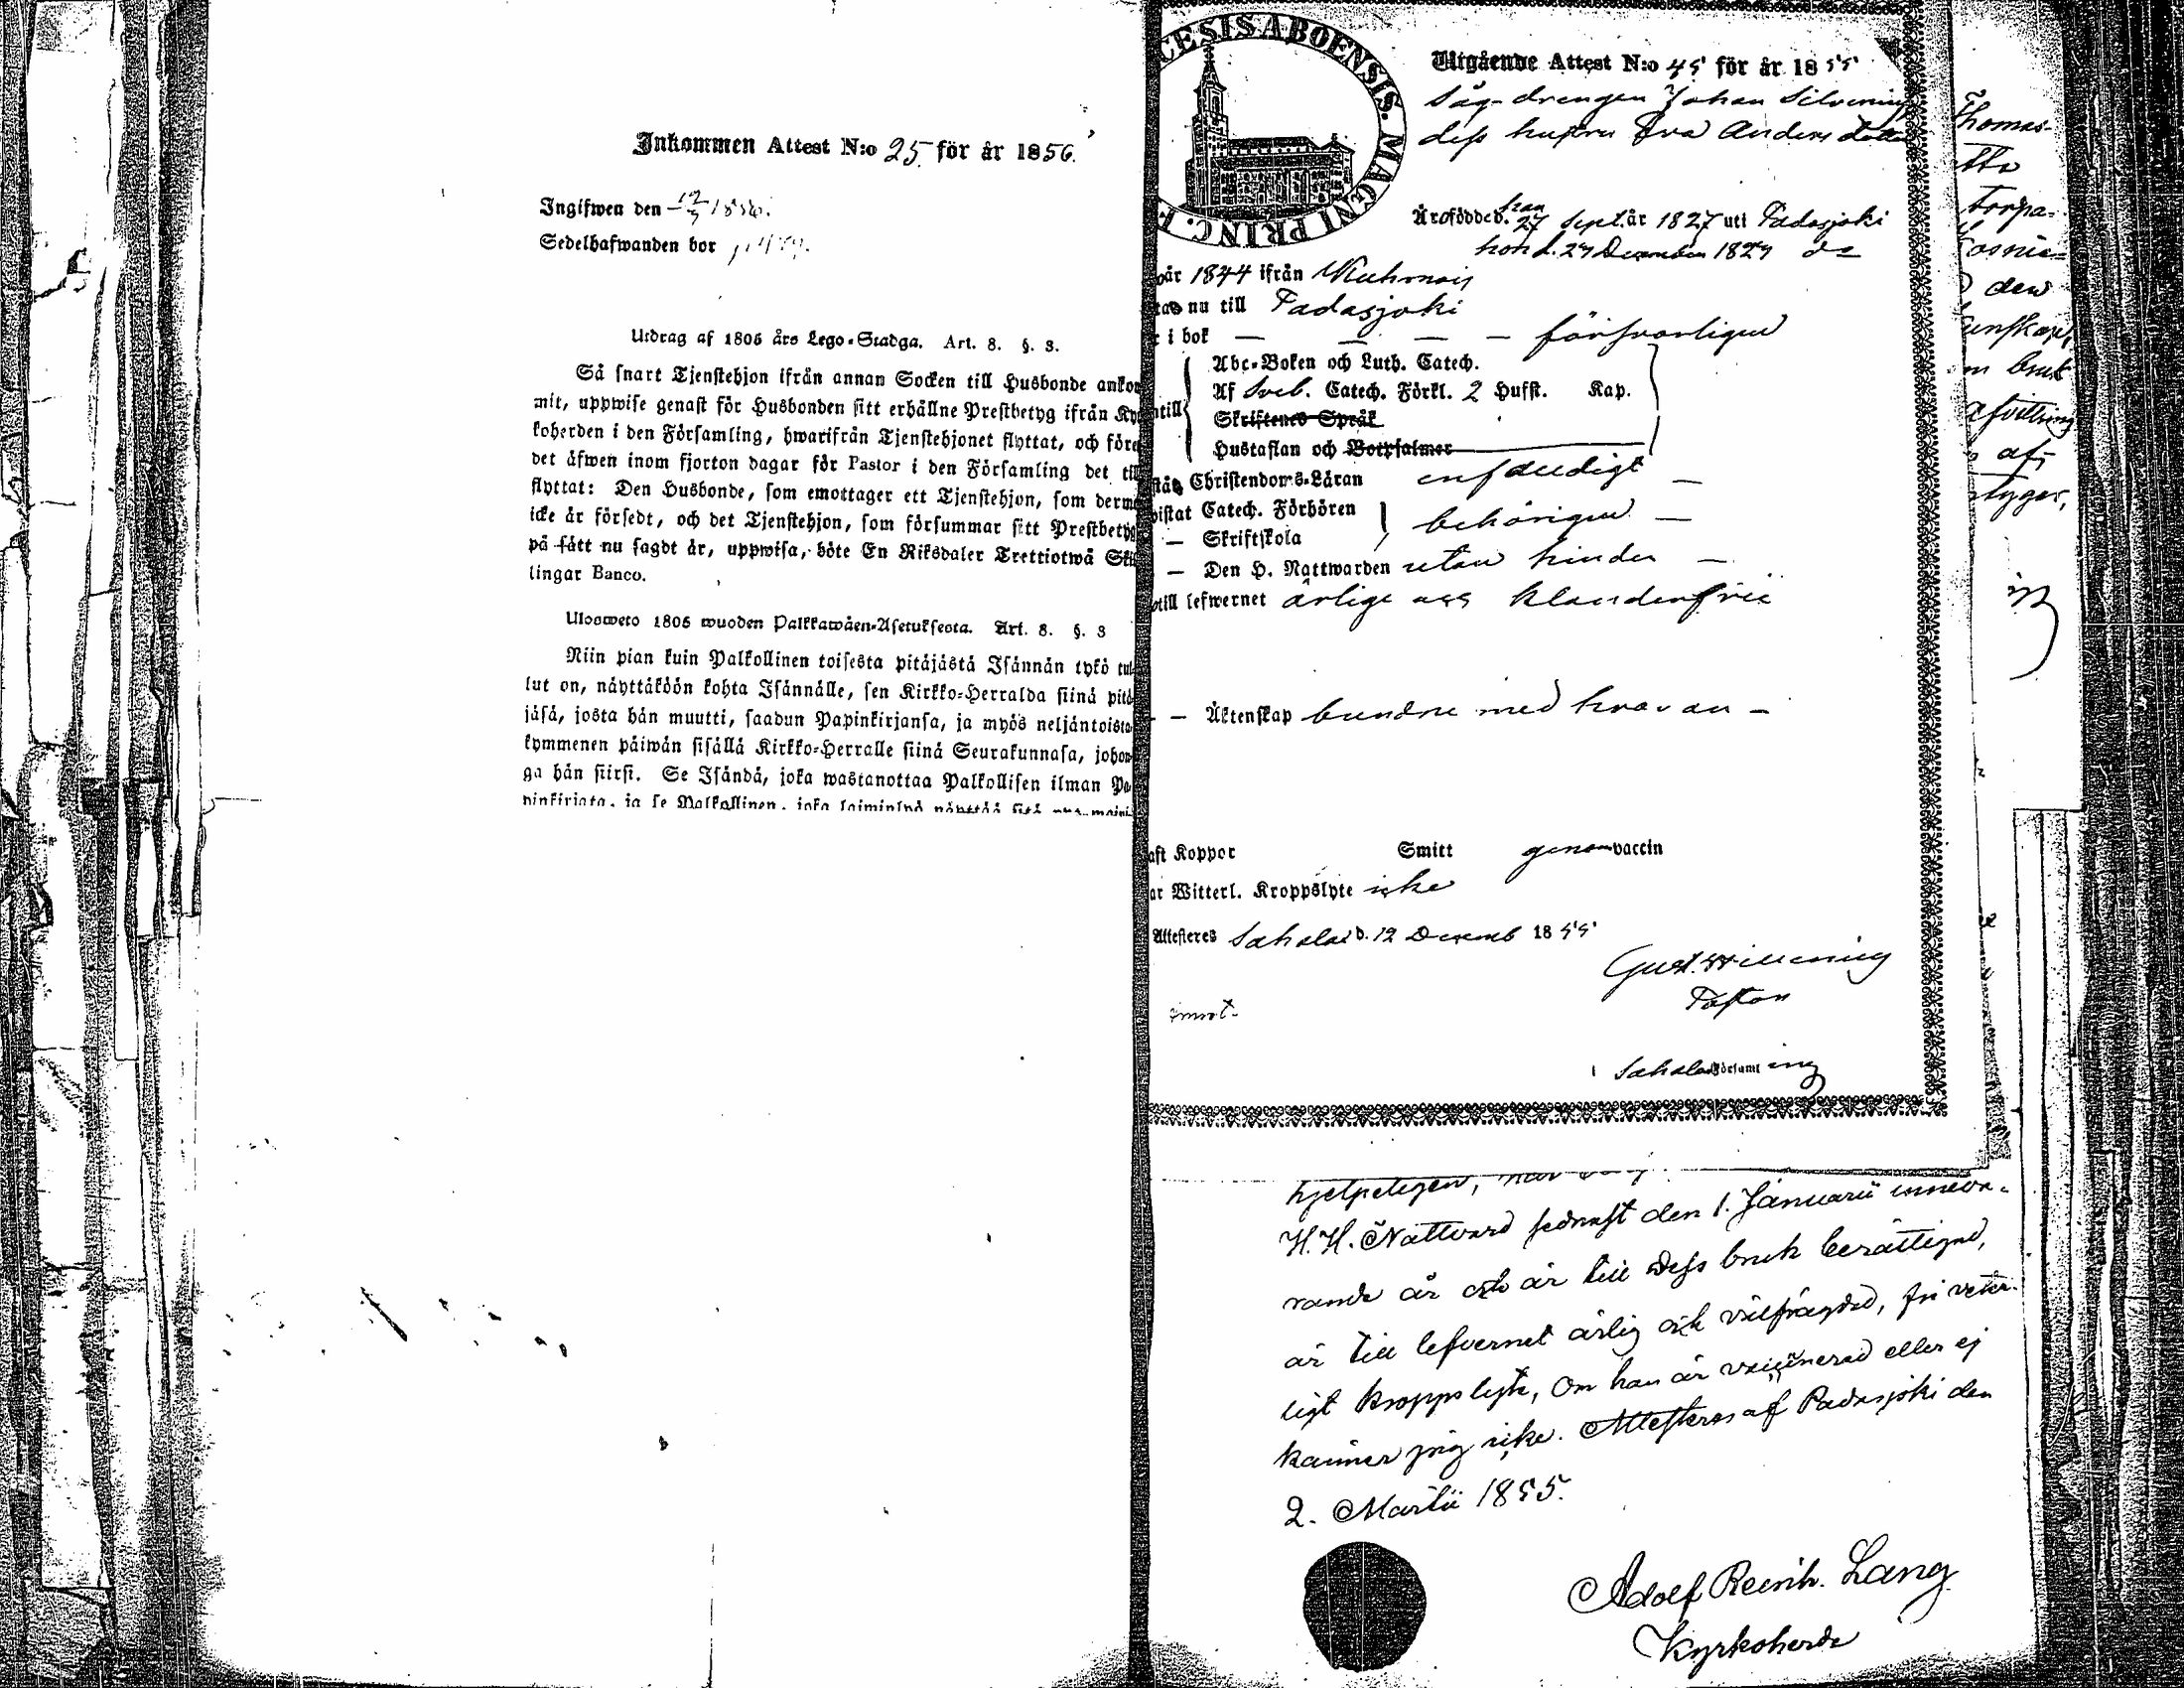 Inkommen Attest N:o 25. för år 1856.
Ingifwen den
Sedelhafwanden bor
Utdrag af 1805 års Lego-Stadga. Art. 8. §. 3.
Så snart Tjenstehjon ifrån annan Socken till Husbonde ankom
mit, uppwise genast för Husbonden sitt erhållne Prestbetyg ifrån Kyr
koherden i den Församling, hwarifrån Tjenstehjonet flyttat, och före
det äfwen inom fjorton dagar för Pastor i den Församling det till
flyttat: Den Husbonde, som emottager ett Tjenstehjon, som derme
icke är försedt, och det Tjenstehjon, som försummar sitt Prestbetyg
på sätt nu sagdt är, uppwisa, böte En Riksdaler Trettiotwå Skil
lingar Banco.
Ulosweto 1805 wuoden Palkkawäen-Asetuksesta. Art. 8. §. 3
Niin pian kuin Palkollinen toisesta pitäjästä Isännän tykö tul
lut on, näyttäköön kohta Isännälle, sen Kirkko-Herralda siinä pitä
jäsä, josta hän muutti, saadun Papinkirjansa, ja myös neljäntoista
kymmenen päiwän sisällä Kirkko-Herralle siinä Seurakunnasa, johon
ga hän siirsi. Se Isändä, joka wastanottaa Palkollisen ilman Pa
pinkirjata, ja se Palkollinen, joka laiminlyö näyttää sitä
CESIS ABOENSIS. MAGNI PRINC. F.
Utgående Attest N:o 45 för år 1855
Såg-drengen Johan Silvening
dess hustru Eva Anders dotter
Äro födde d. han 27 Sept. år 1827 uti Padasjoki
hon d. 27 December 1827 do
år 1844 ifrån Kuhmois
nu till Padasjoki
i bok — — — — försvarligen
Abc-Boken och Luth. Catech.
Af Sveb. Catech. Förkl. 2 Hufst. Kap.
till
Skriftenes Språk
Hustaflan och Botpsalmer
Christendoms-Läran enfaldigt —
bistat Catech. Förhören
— Skriftskola behörigen —
— Den H. Nattwarden utan hinder —
till lefwernet ärlige och klanderfrie
— — Äktenskap bundne med hvarann —
aft Koppor Smitt genom vaccin
ar Witterl. Kroppslyte icke
Attesteres Sahalaks d. 12 Decemb 1855
Gust. Willening
Pastor
Sahalaks Församling
Thomas
tto
Torpa-
den
unskap,
m bruk
af
hjelpeligen,
H. H. Nattvard sednast den 1. Januarii inneva-
rande år och är till dess bruk berättigad,
är till lefvernet ärlig och välfrägdad, fri veter-
ligt kroppslyte, Om han är vaccinerad eller ej
känner jag icke. Attesteras af Padasjoki den
2. Martii 1855.
Adolf Reinh. Lang
Kyrkoherde